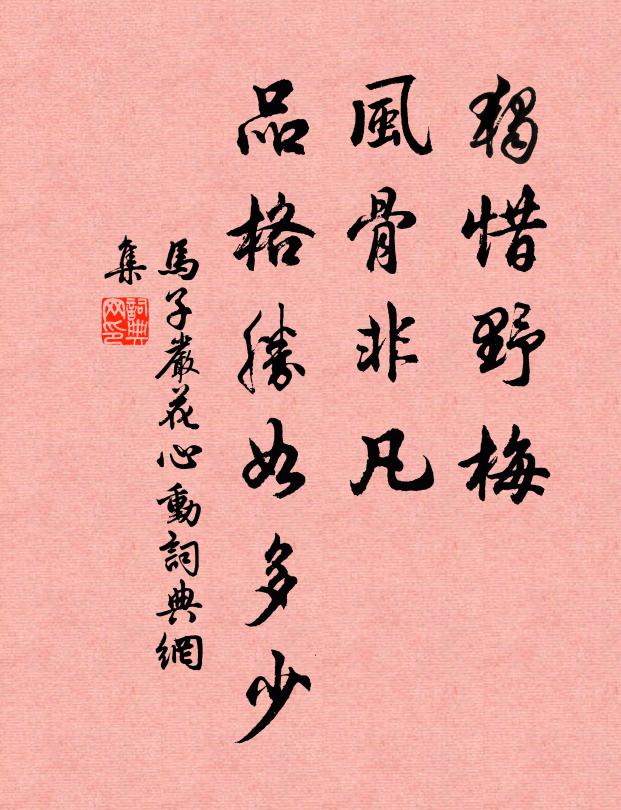 獨惜野梅
風骨非凡
品格勝如多少
馬子嚴花心動詞典網
集
詞典
网印